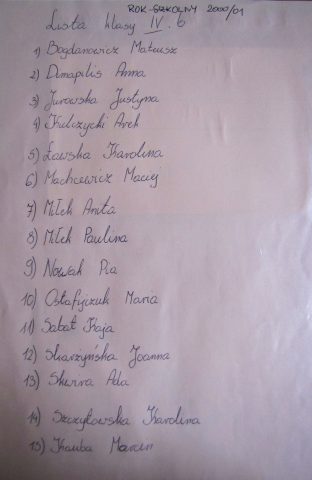 ROK SZKOLNY 2000/01
Lista klasy IV. b
1) Bogdanowicz Mateusz
2) Dmapilis Anna
3) Jurowska Justyna
4) Kulczycki Arek
5) Ławska Karolina
6) Machcewicz Maciej
7) Miłek Anita
8) Miłek Paulina
9) Nowak Pia
10) Ostafijczuk Maria
11) Sabat Kaja
12) Skarżyńska Joanna
13) Skwira Ada
14) Szczytowska Karolina
15) Kauba Marcin